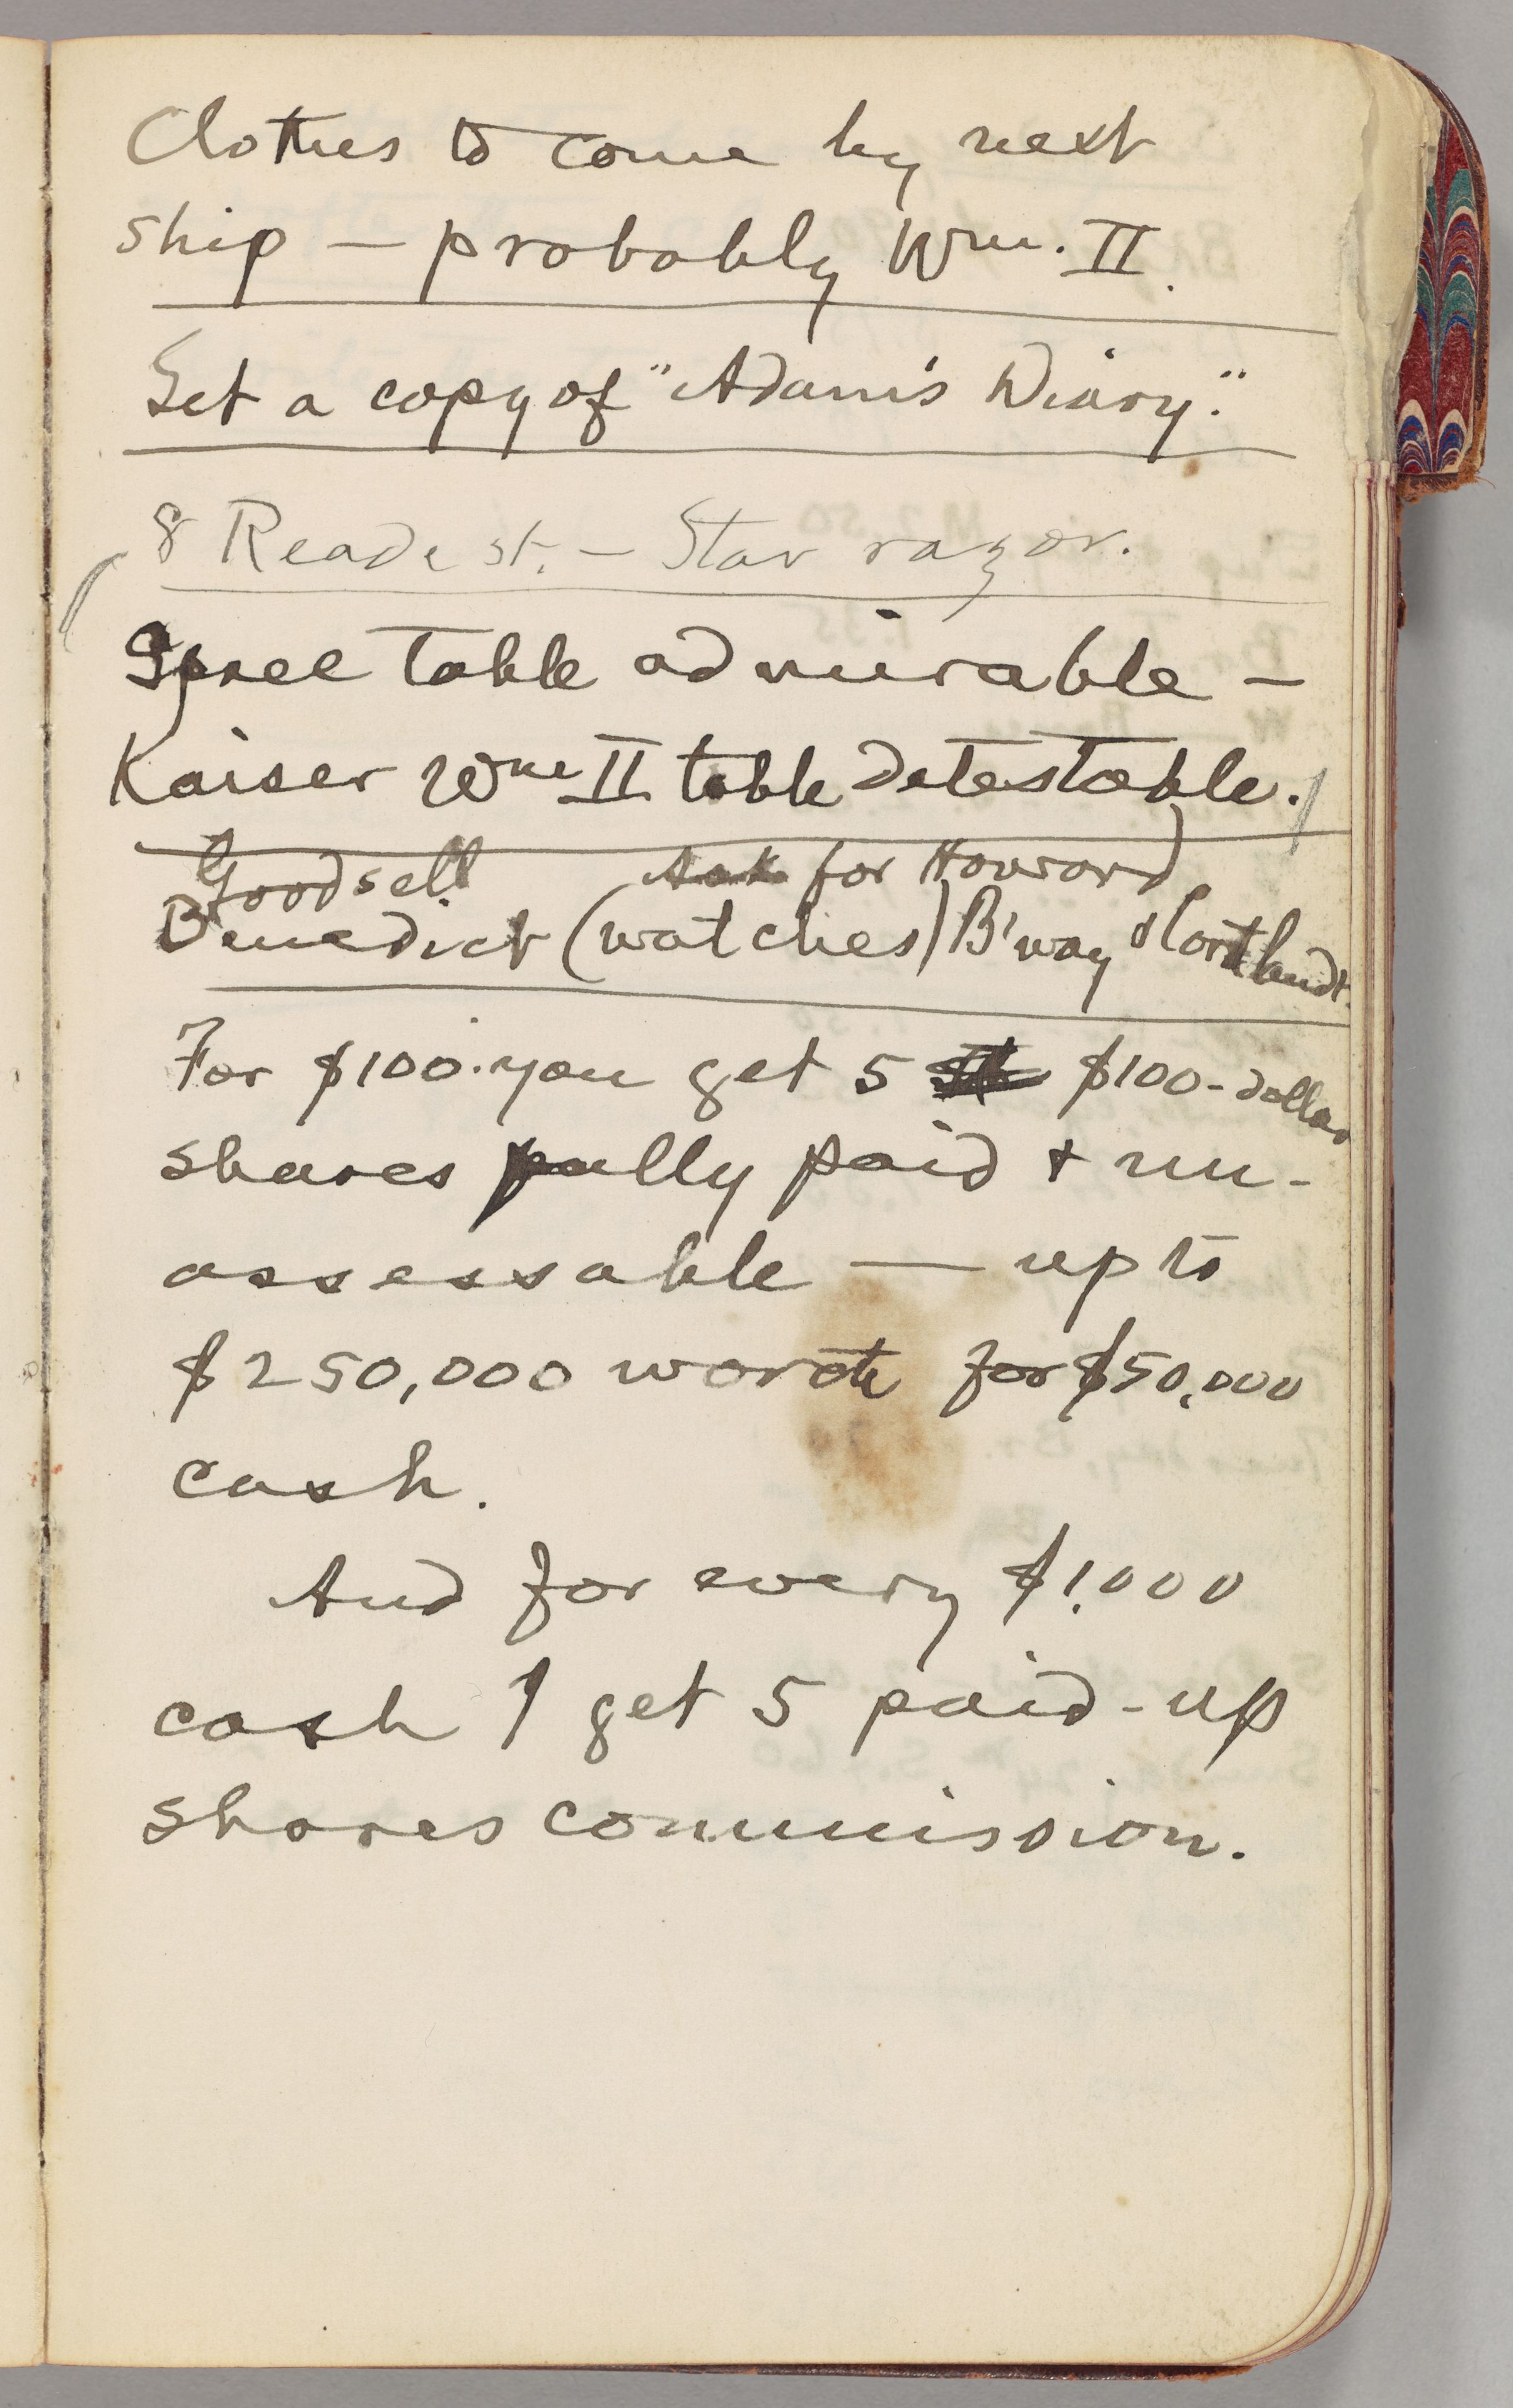 Clothes to come by next
ship — probably Wm. II.
Get a copy of "Adam's Diary."
8 Reade st. — Star razor.
Spree table admirable —
Kaiser Wm II table detestable.
Goodsell Ask for Howard
Benedict (watches) B'way & Cortlandt.
For $100 you get 5 $100-dollar
shares fully paid + un-
assessable — up to
$250,000 worth for $50,000
cash.
And for every $1,000
cash I get 5 paid-up
shares commission.